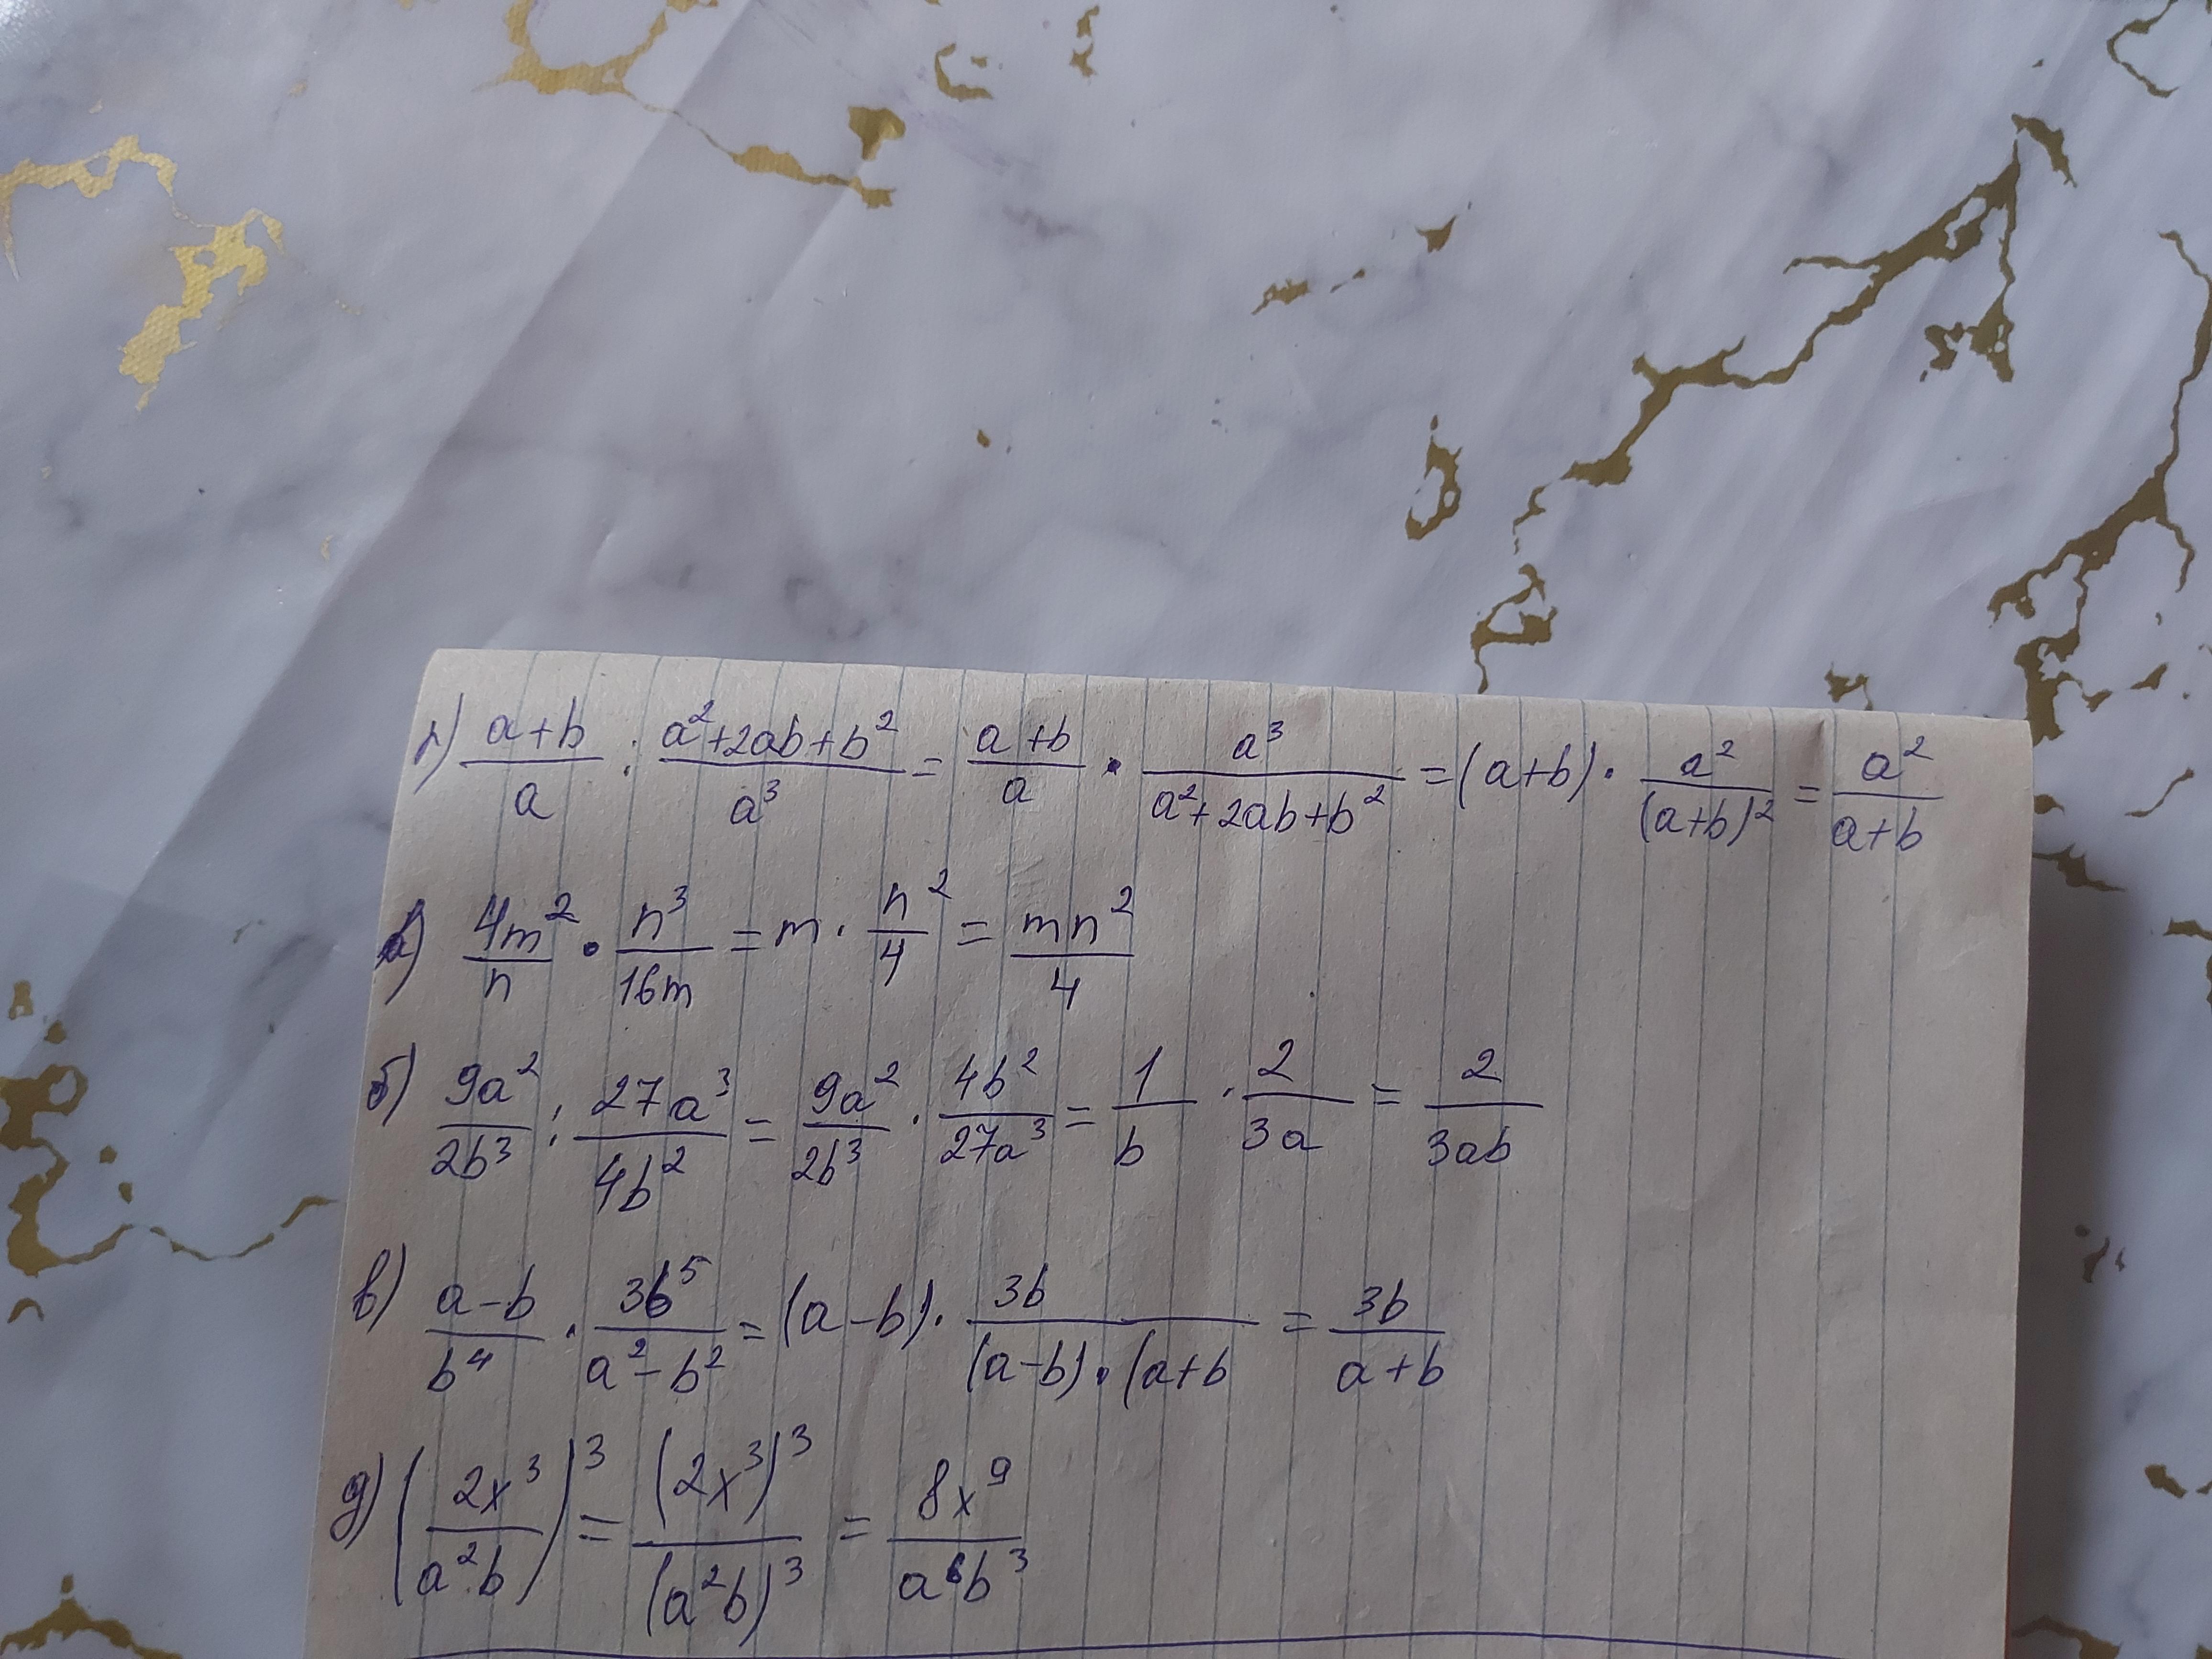 г) (a+b)/a : (a²+2ab+b²)/a³ = (a+b)/a · a³/(a²+2ab+b²) = (a+b) · a²/(a+b)² = a²/(a+b)
а) 4m²/n · n³/16m = m · n²/4 = mn²/4
б) 9a²/2b³ : 27a³/4b² = 9a²/2b³ · 4b²/27a³ = 1/b · 2/3a = 2/3ab
в) (a-b)/b⁴ · 3b⁵/(a²-b²) = (a-b) · 3b/(a-b)·(a+b = 3b/(a+b)
д) (2x³/a²b)³ = (2x³)³/(a²b)³ = 8x⁹/a⁶b³